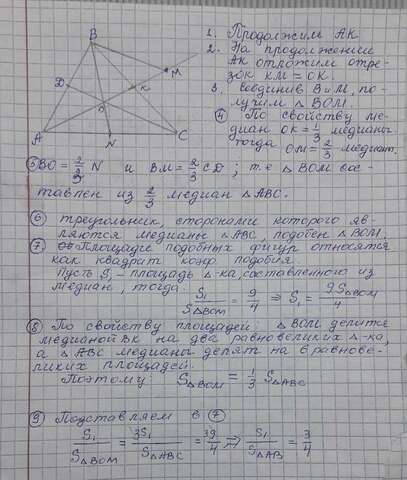 B
D
M
K
O
A
N
C
1. Продолжим АК
2. На продолжении
АК отложим отре-
зок КМ = ОК.
3. соединив В и М, по-
лучим △ ВОМ.
④ По свойству ме-
диан ОК = 1/3 медианы
тогда ОМ = 2/3 медиан.
⑤ ВО = 2/3 N и ВМ = 2/3 CD ; т.е △ ВОМ сос-
тавлен из 2/3 медиан △АВС.
⑥ треугольник, сторонами которого яв-
ляются медианы △АВС подобен △ВОМ.
⑦ Площади подобных фигур относятся
как квадрат коэф подобия.
Пусть S₁ – площадь △-ка, составленного из
медиан, тогда.
S₁/S△BOM = 9/4 ⇒ S₁ = 9S△BOM/4
⑧ По свойству площадей: △ВОМ делится
медианой ВК на два равновеликих △-ка,
а △АВС медианы делят на 6 равнове-
ликих площадей.
Поэтому S△BOM = 1/3 S△ABC
⑨ Подставляем в ⑦
S₁/S△BOM = 3S₁/S△ABC = 9/4 ⇒ S₁/S△AB = 3/4